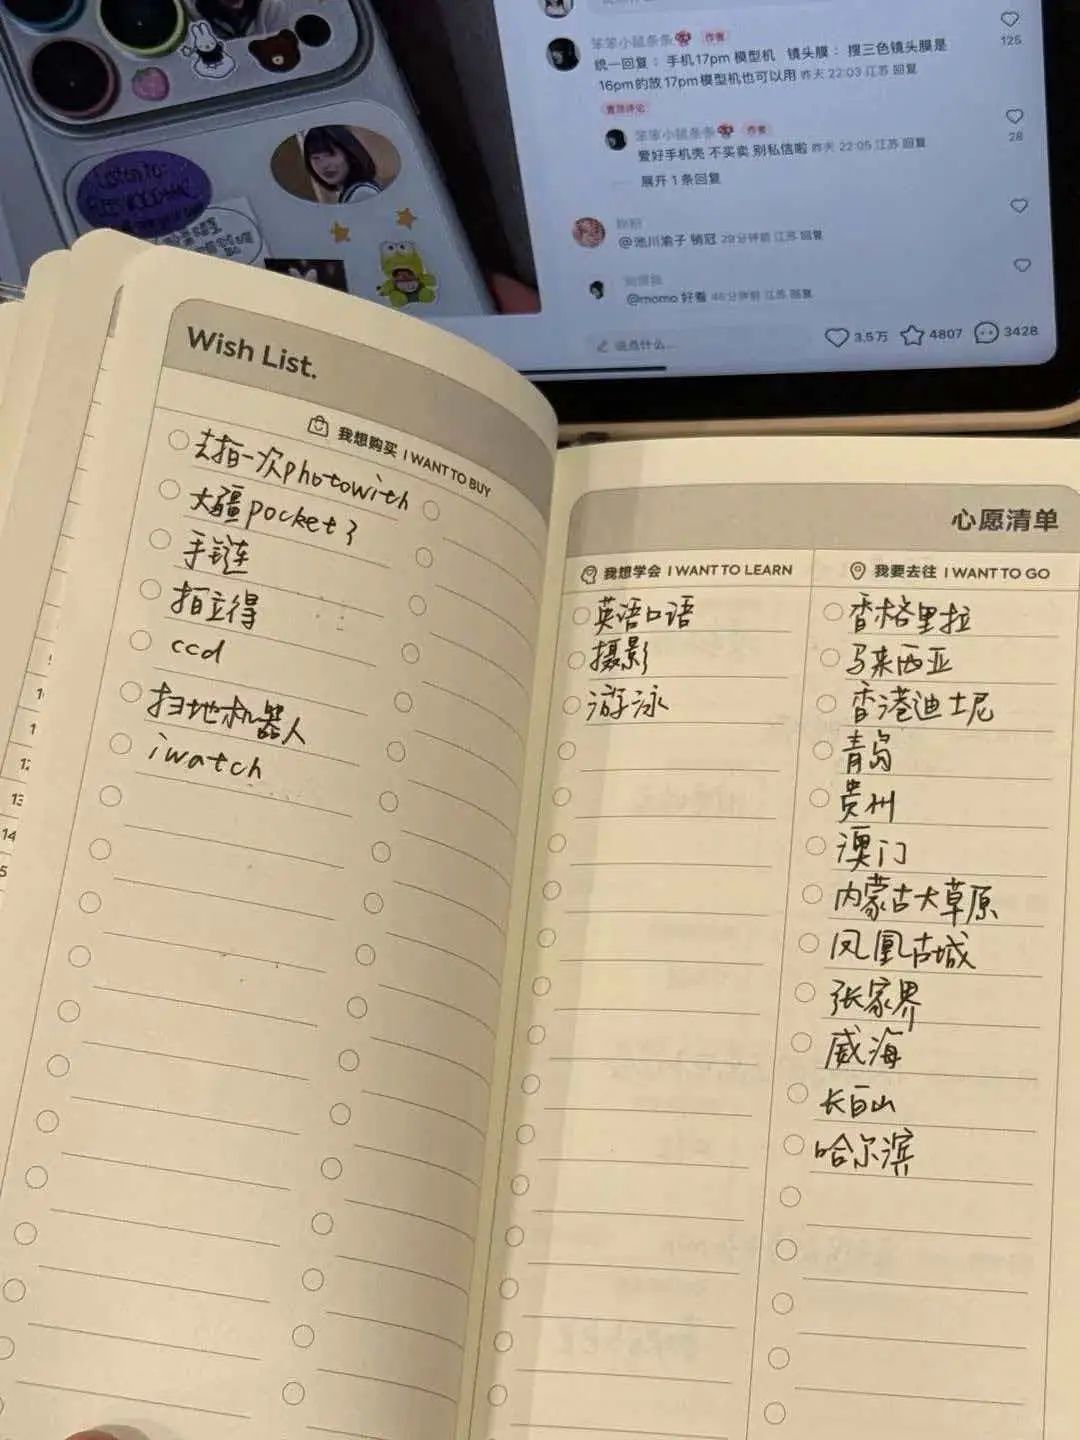 笨笨小鼠条条 作者
统一回复：手机17pm 模型机 镜头膜：搜三色镜头膜是
16pm的放17pm模型机也可以用 昨天 22:03 江苏 回复
125
置顶评论
笨笨小鼠条条 作者
爱好手机壳 不买卖 别私信啦 昨天 22:05 江苏 回复
28
展开1条回复
@池川渝子 销冠 29分钟前 江苏 回复
@momo 好看 46分钟前 江苏 回复
说点什么...
3.5万
4807
3428
Listen to
Wish List.
我想购买 I WANT TO BUY
去拍一次photowith
大疆pocket3
手链
拍立得
ccd
扫地机器人
iwatch
心愿清单
我想学会 I WANT TO LEARN
英语口语
摄影
游泳
我要去往 I WANT TO GO
香格里拉
马来西亚
香港迪士尼
青岛
贵州
澳门
内蒙古大草原
凤凰古城
张家界
威海
长白山
哈尔滨
13
14